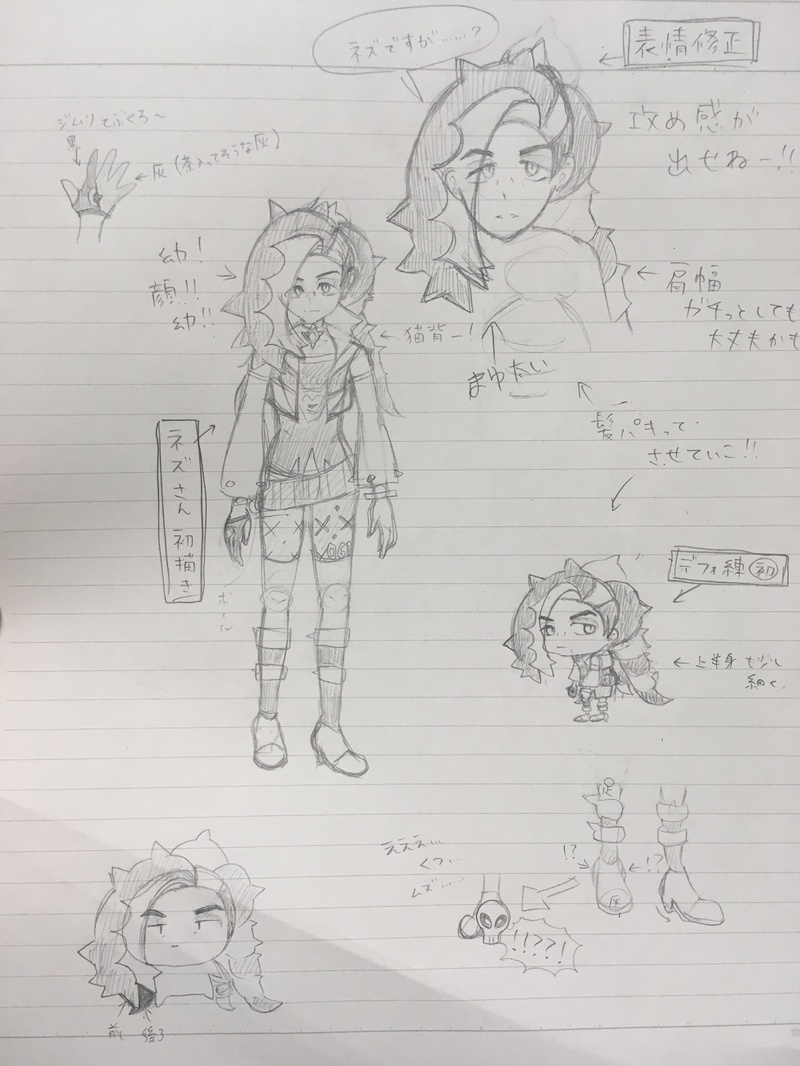 ネズですが……?
表情修正
攻め感が
出せねー!!
ジムリてぶくろ〜
黒
灰(茶入ってそうな灰)
幼!
顔!!
幼!!
猫背ー!
肩幅
ガチっとしても
大丈夫かも
まゆ太い
髪パキって
させていこ!!
ネズさん 初描き
デフォ練 初
上半身も少し
細く
足
!?
!?
灰
えええ…
くつ…
ムズ……
!!??!
前 後ろ